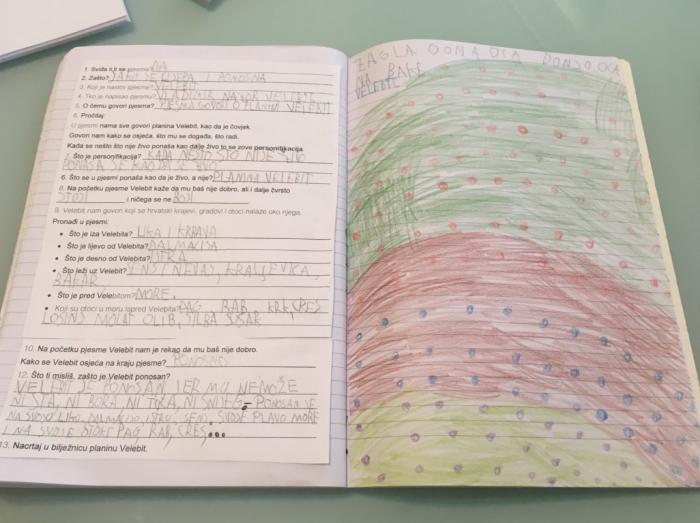 1. Sviđa ti se pjesma? DA
2. Zašto? JAKO JE LIJEPA I PONOSNA
3. Koji je naslov pjesme? VELEBIT
4. Tko je napisao pjesmu? VLADIMIR NAZOR VELEBIT
5. O čemu govori pjesma? PJESMA GOVORI O PLANINI VELEBIT
6. Pročitaj:
U pjesmi nama sve govori planina Velebit, kao da je čovjek.
Govori nam kako se osjeća, što mu se događa, što radi.
Kada se nešto što nije živo ponaša kao da je živo to se zove personifikacija
Što je personifikacija? KADA NEŠTO ŠTO NIJE ŽIVO
PONAŠA SE KAO DA JE ŽIVO
6. Što se u pjesmi ponaša kao da je živo, a nije? PLANINA VELEBIT
8. Na početku pjesme Velebit kaže da mu baš nije dobro, ali i dalje čvrsto
STOJI i ničega se ne BOJI
9. Velebit nam govori koji se hrvatski krajevi, gradovi i otoci nalaze oko njega.
Pronađi u pjesmi:
• Što je iza Velebita? LIKA I KRBAVA
• Što je lijevo od Velebita? DALMACIJA
• Što je desno od Velebita? ISTRA
• Što leži uz Velebit? SENJ KRALJEVICA,
BAKAR
• Što je pred Velebitom? MORE
• Koji su otoci u moru ispred Velebita? PAG RAB KRK CRES
LOŠINJ MOLAT OLIB, SILBA SUSAK
10. Na početku pjesme Velebit nam je rekao da mu baš nije dobro.
Kako se Velebit osjeća na kraju pjesme? PONOSNO
12. Što ti misliš, zašto je Velebit ponosan?
VELEBIT JE PONOSAN JER MU NEMOŽE
NIŠTA, NI BURA NI NI SNIJEG - PONOSAN JE
NA SVOJU LIKU, DALMACIJU, ISTRU, SENJ, SVOJE PLAVO MORE
I NA SVOJE OTOKE PAG RAB, CRES...
13. Nacrtaj u bilježnicu planinu Velebit.
VELEBIT